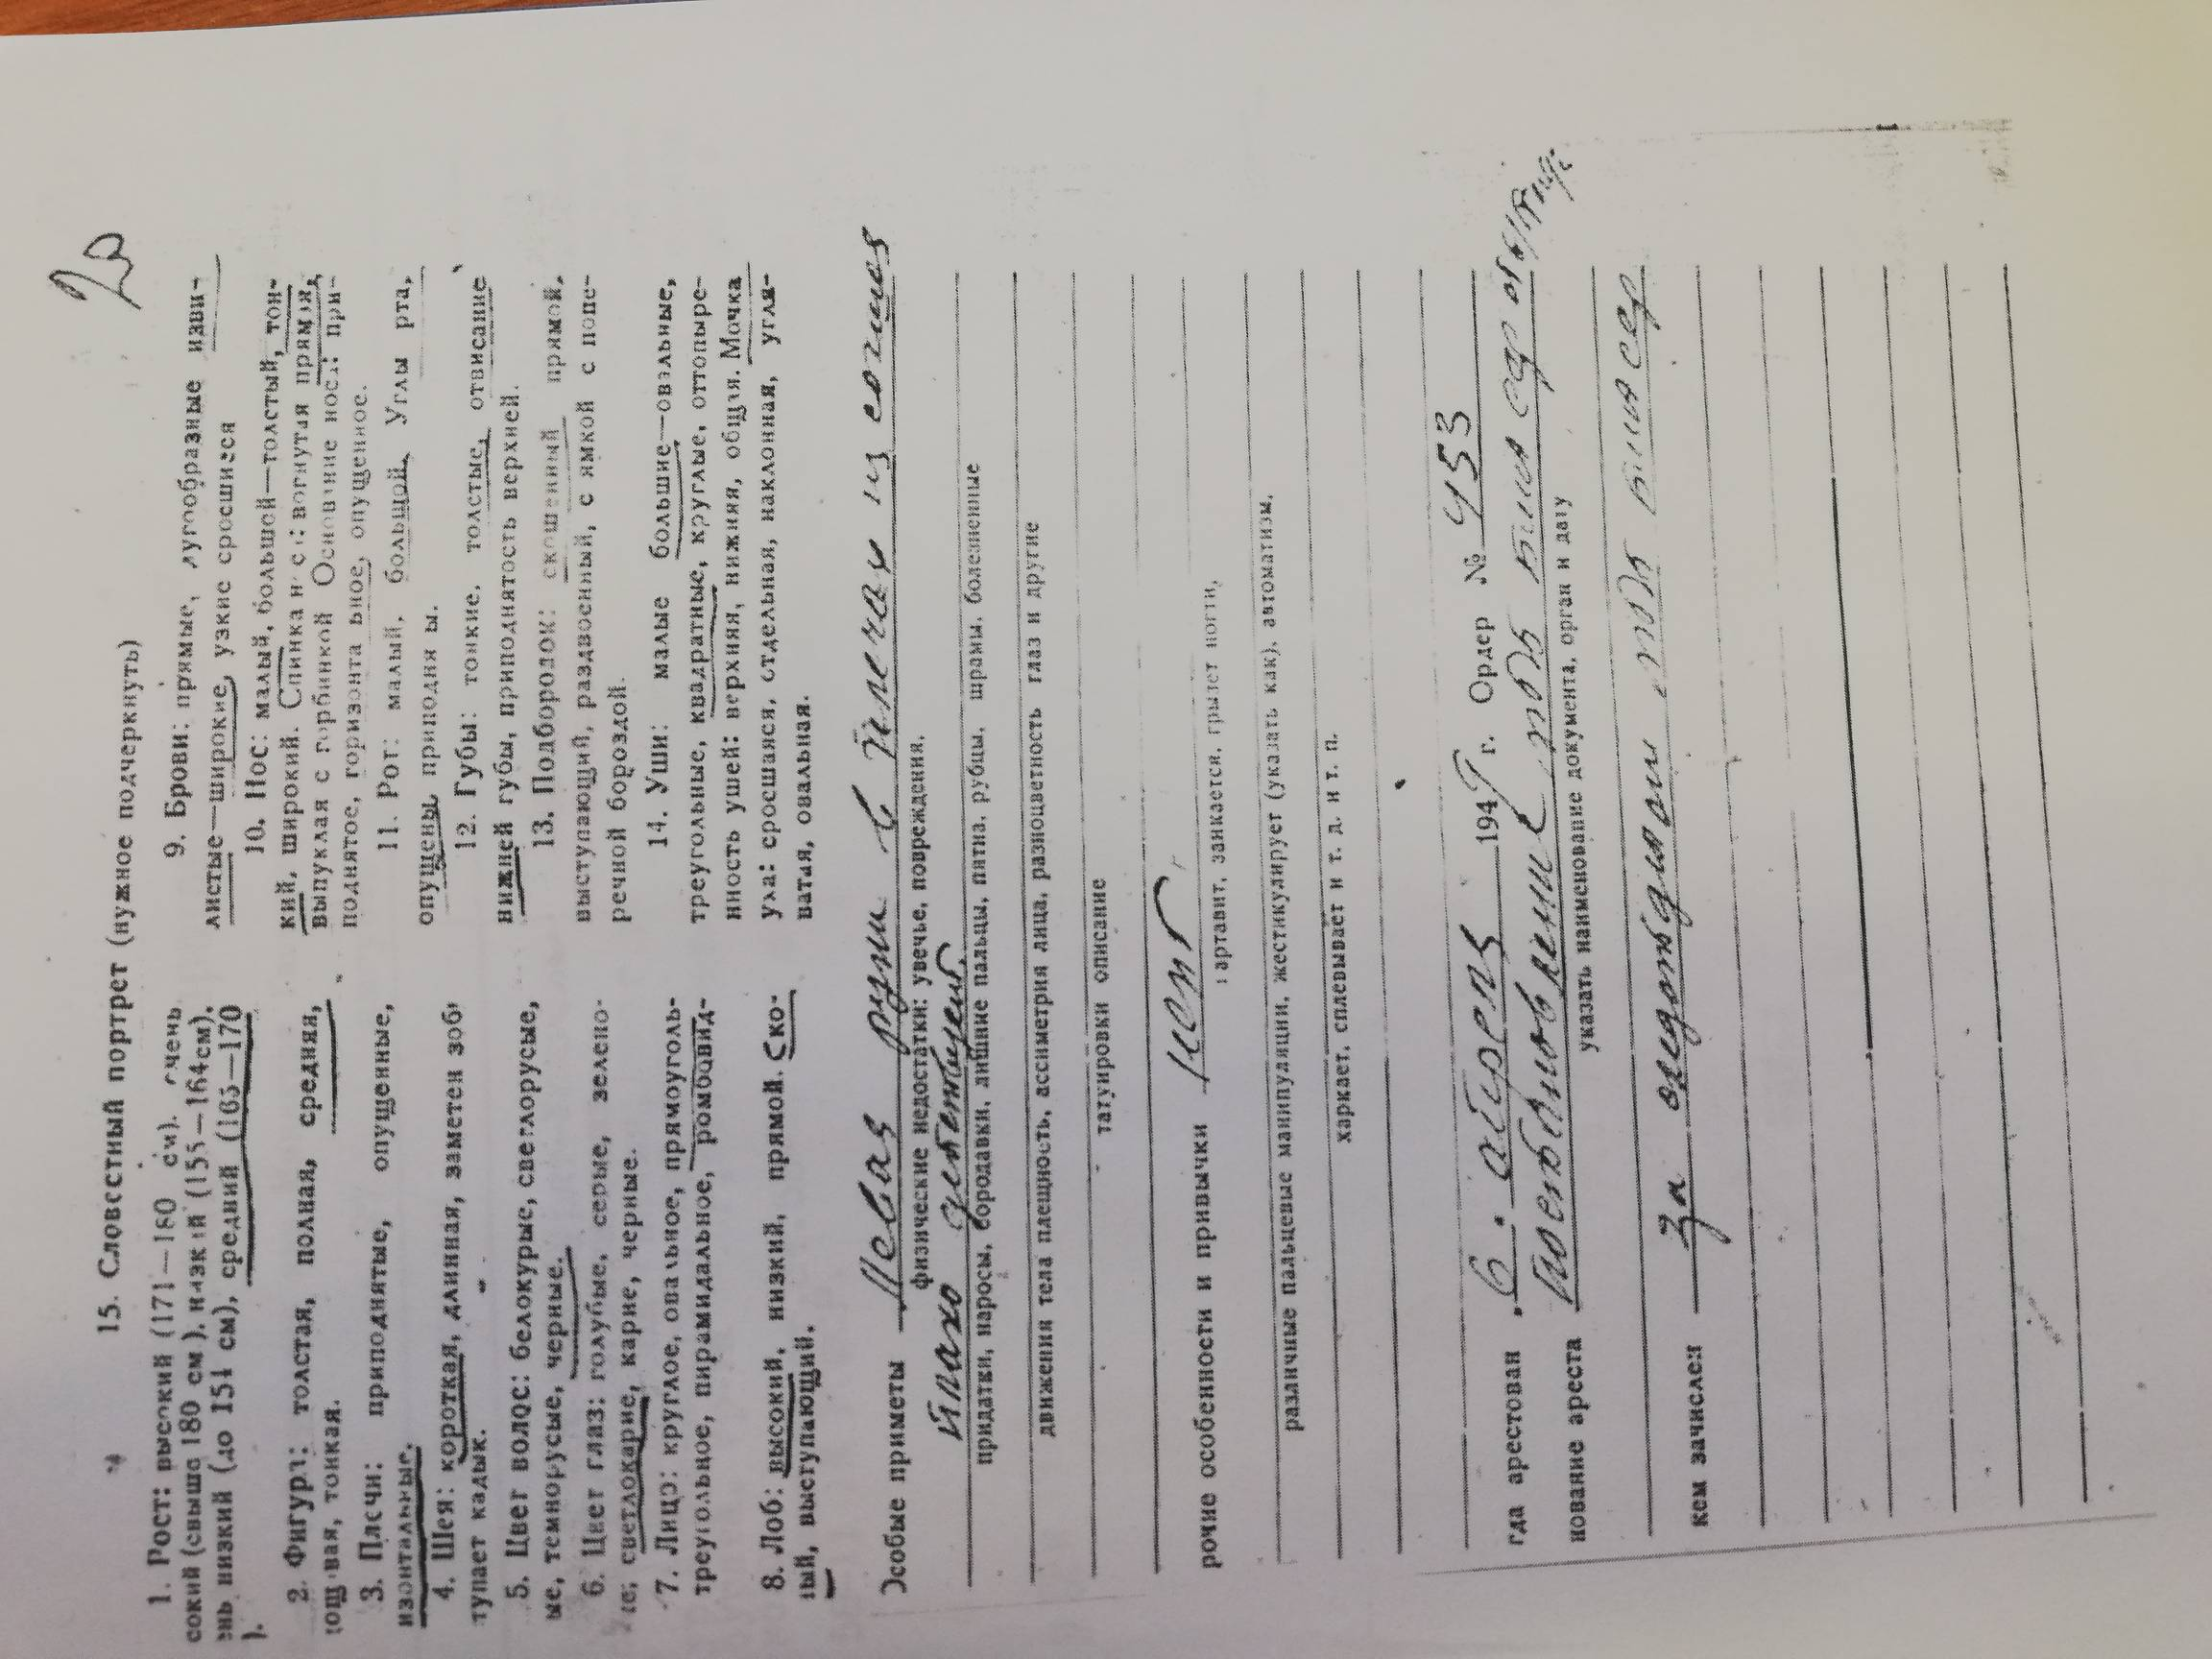 2
15. Словестный портрет (нужное подчеркнуть)
1. Рост: высокий (171—180 см), очень
сокий (свыше 180 см), низкий (155—164 см),
ень низкий (до 154 см), средний (165—170
).
2. Фигура: толстая, полная, средняя,
тощавая, тонкая.
3. Плечи: приподнятые, опущенные,
изонтальные.
4. Шея: короткая, длинная, заметен зоб,
тупает кадык.
5. Цвет волос: белокурые, светлорусые,
ые, темнорусые, черные.
6. Цвет глаз: голубые, серые, зелено-
е, светлокарие, карие, черные.
7. Лицо: круглое, овальное, прямоуголь-
треугольное, пирамидальное, ромбовид-
8. Лоб: высокий, низкий, прямой. Ско-
ный, выступающий.
9. Брови: прямые, дугообразные изви-
листые—широкие, узкие сросшиеся
10. Нос: малый, большой—толстый, тон-
кий, широкий. Спинка носа: вогнутая прямая,
выпуклая с горбинкой Основание носа: при-
поднятое, горизонтальное, опущенное.
11. Рот: малый, большой. Углы рта,
опущены, приподняты.
12. Губы: тонкие, толстые, отвисание
нижней губы, приподнятость верхней.
13. Подбородок: скошенный прямой,
выступающий, раздвоенный, с ямкой с попе-
речной бороздой.
14. Уши: малые большие—овальные,
треугольные, квадратные, круглые, оттопыре-
нность ушей: верхняя, нижняя, общая. Мочка
уха: сросшаяся, отдельная, наклонная, угля-
ватая, овальная.
Особые приметы Левая рука в плечах из
физические недостатки: увечье, повреждения,
плохо
придатки, наросы, бородавки, лишние пальцы, пятна, рубцы, шрамы, болезненные
движения тела плещность, ассиметрия лица, разноцветность глаз и другие
татуировки описание
рочие особенности и привычки нет
артавит, заикается, грызет ногти,
различные пальцевые манипуляции, жестикулирует (указать как), автоматизм,
харкает, сплевывает и т. д. и т. п.
гда арестован 6. апреля 1949 г. Ордер № 453
нование ареста Постановление
указать наименование документа, орган и дату
кем зачислен за